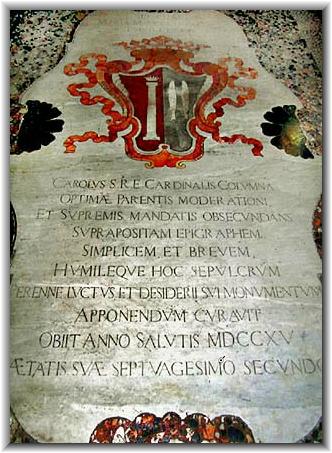 CAROLVS S R E CARDINALIS COLVMNA
OPTIMÆ PARENTIS MODERATIONI
ET SVPREMIS MANDATIS OBSECVNDANS
SVPRAPOSITAM EPIGRAPHEM
SIMPLICEM ET BREVEM,
HVMILEQVE HOC SEPVLCRVM
PERENNE LVCTVS ET DESIDERII SVI MONVMENTVM
APPONENDVM CVRAVIT
OBIIT ANNO SALVTIS MDCCXV
ÆTATIS SVÆ SEPTVAGESIMO SECVNDO